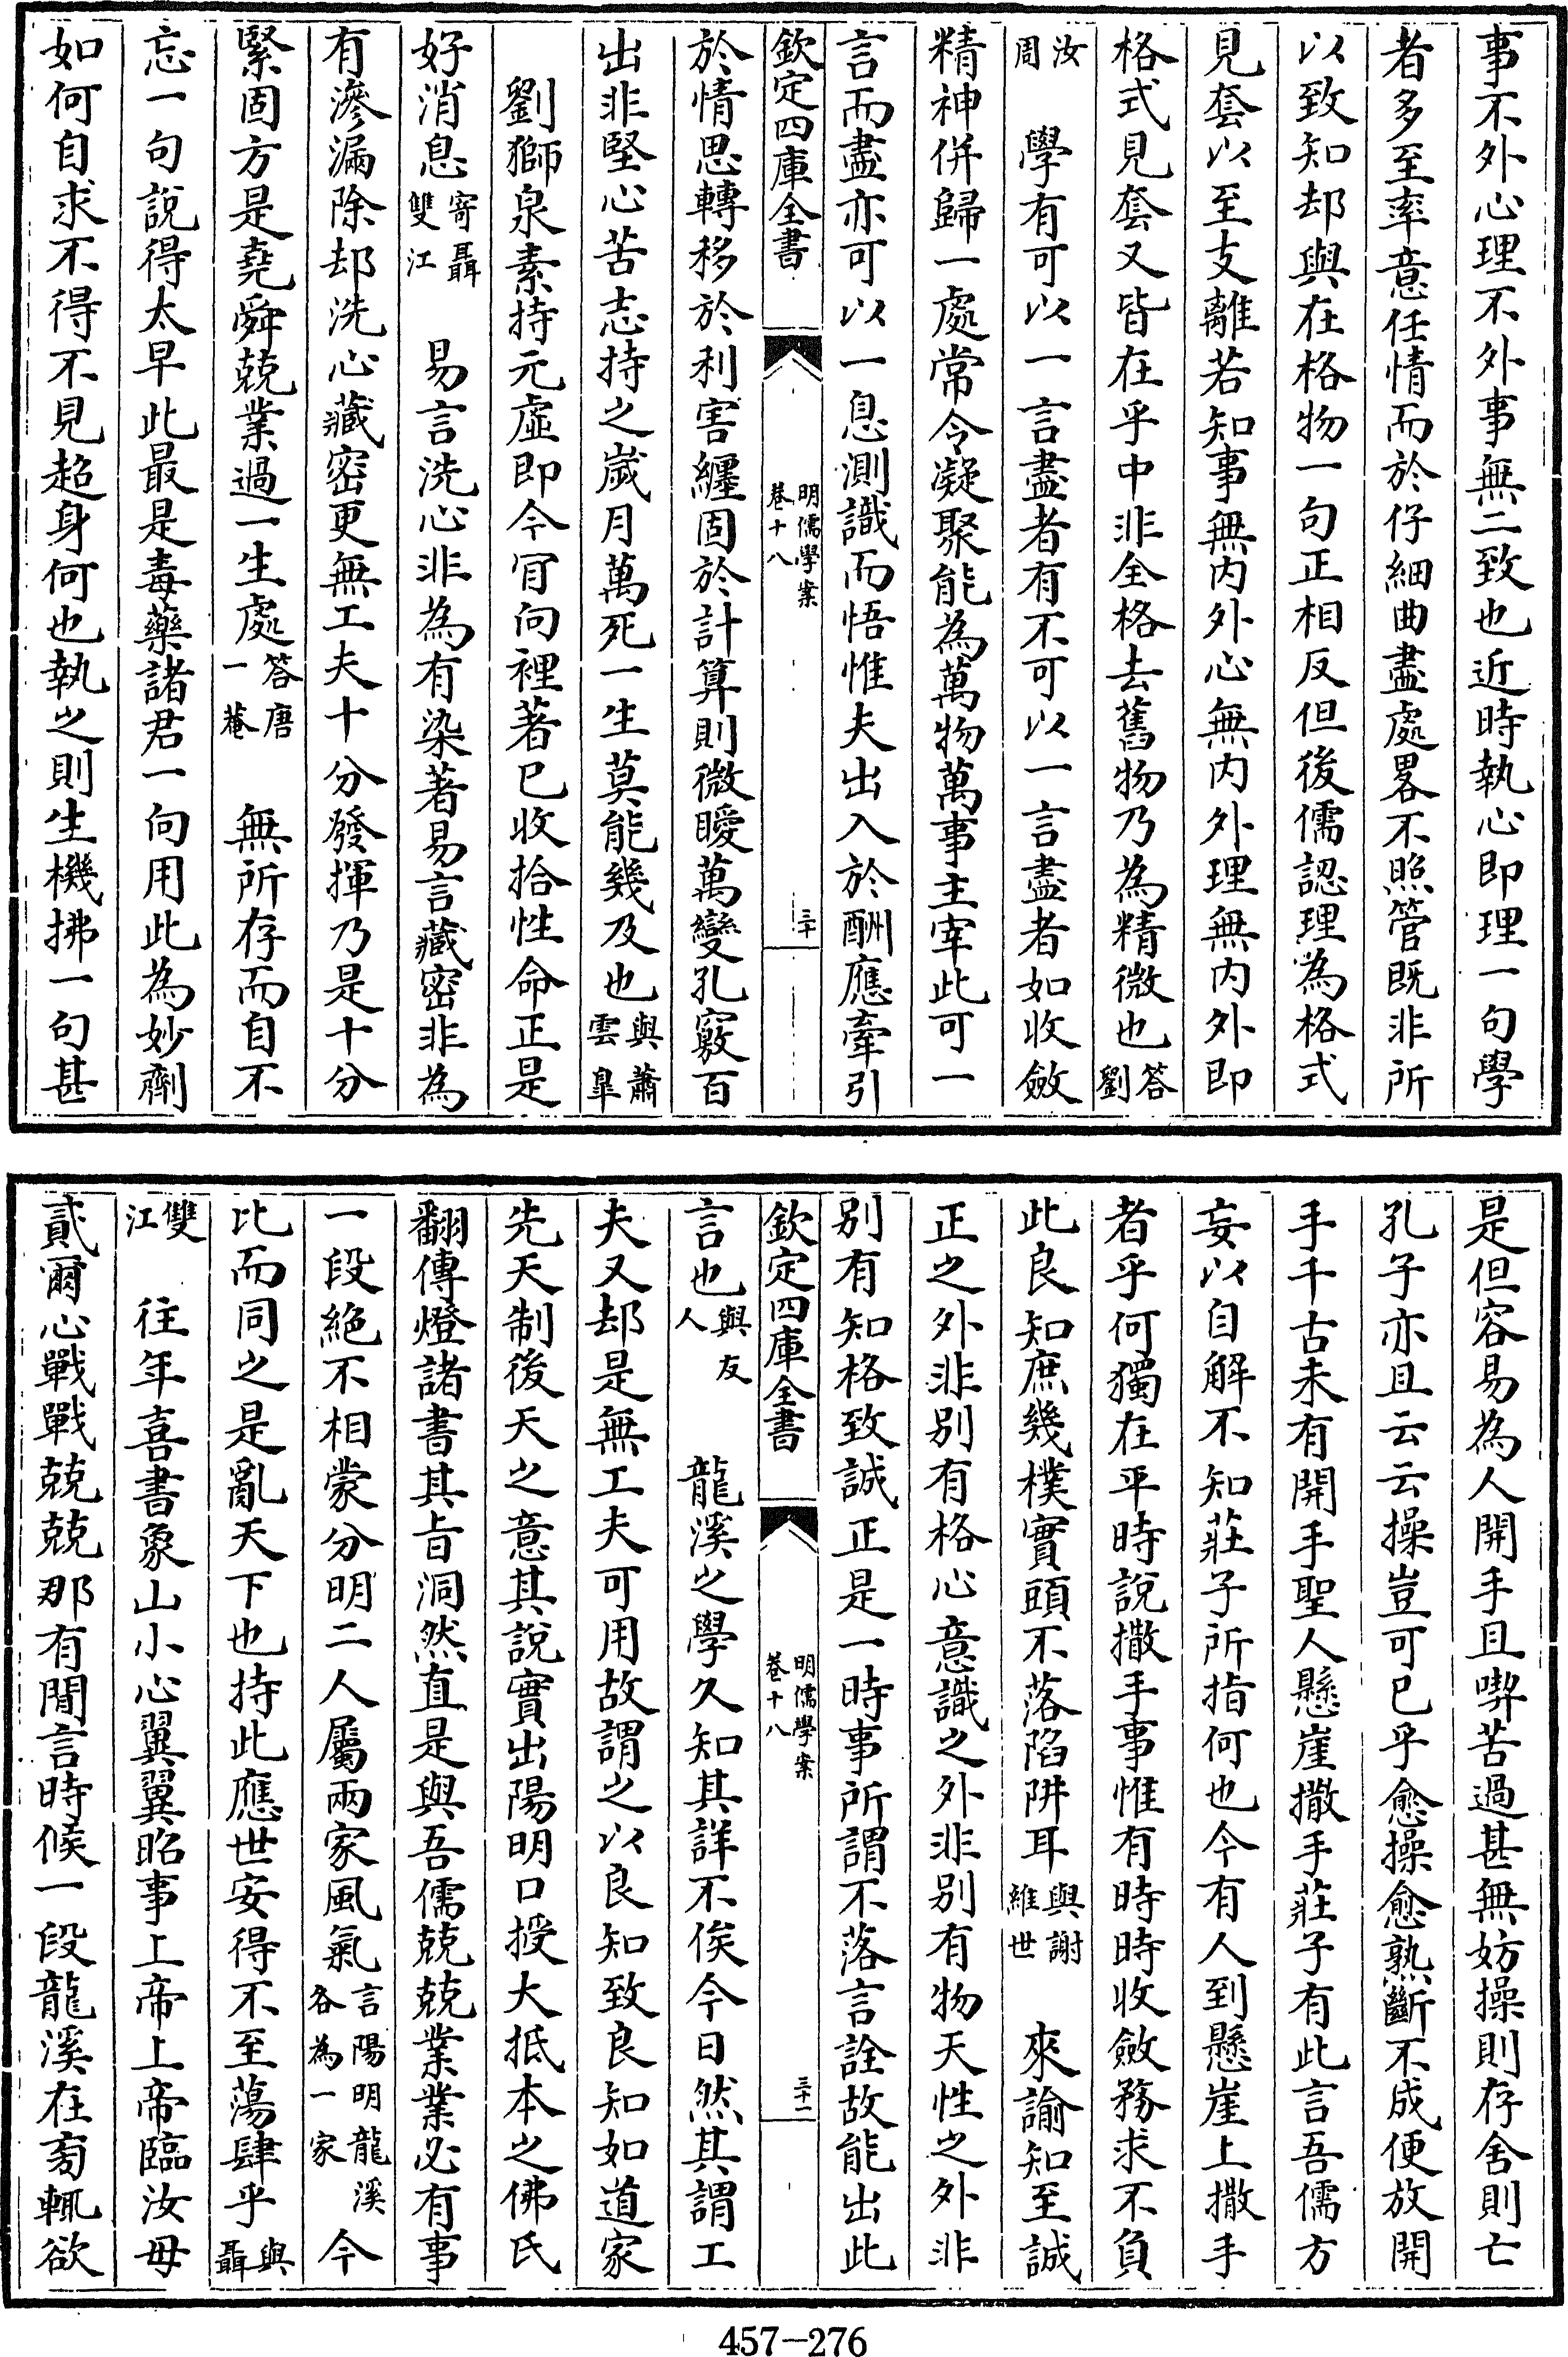 事不外心理不外事無二致也近時執心即理一句學
者多至率意任情而於仔細曲盡處畧不照管既非所
以致知却與在格物一句正相反但後儒認理為格式
見套以至支離若知事無內外心無內外理無內外即
格式見套又皆在乎中非全格去舊物乃為精微也答劉
汝周　學有可以一言盡者有不可以一言盡者如收斂
精神併歸一處常令凝聚能為萬物萬事主宰此可一
言而盡亦可以一息測識而悟惟夫出入於酬應牽引
欽定四庫全書　明儒學案卷十八　三十
於情思轉移於利害纏固於計算則微曖萬變孔竅百
出非堅心苦志持之歲月萬死一生莫能幾及也與蕭雲臯
劉獅泉素持元虛即今肎向裡著已收拾性命正是
好消息寄聶雙江　易言洗心非為有染著易言藏密非為
有滲漏除却洗心藏密更無工夫十分發揮乃是十分
緊固方是堯舜兢業過一生處答唐一菴　無所存而自不
忘一句說得太早此最是毒藥諸君一向用此為妙劑
如何自求不得不見超身何也執之則生機拂一句甚
是但容易為人開手且喫苦過甚無妨操則存舍則亡
孔子亦且云云操豈可已乎愈操愈熟斷不成便放開
手千古未有開手聖人懸崖撒手莊子有此言吾儒方
妄以自解不知莊子所指何也今有人到懸崖上撒手
者乎何獨在平時說撒手事惟有時時收斂務求不負
此良知庶幾樸實頭不落陷阱耳與謝維世　來諭知至誠
正之外非別有格心意識之外非別有物天性之外非
別有知格致誠正是一時事所謂不落言詮故能出此
欽定四庫全書　明儒學案卷十八　三十一
言也與友人　龍溪之學久知其詳不俟今日然其謂工
夫又却是無工夫可用故謂之以良知致良知如道家
先天制後天之意其說實出陽明口授大抵本之佛氏
翻傳燈諸書其旨洞然直是與吾儒兢兢業業必有事
一段絕不相蒙分明二人屬兩家風氣言陽明龍溪各為一家今
比而同之是亂天下也持此應世安得不至蕩肆乎與聶
雙江　往年喜書象山小心翼翼昭事上帝上帝臨汝毋
貳爾心戰戰兢兢那有閒言時候一段龍溪在旁輒欲
457-276